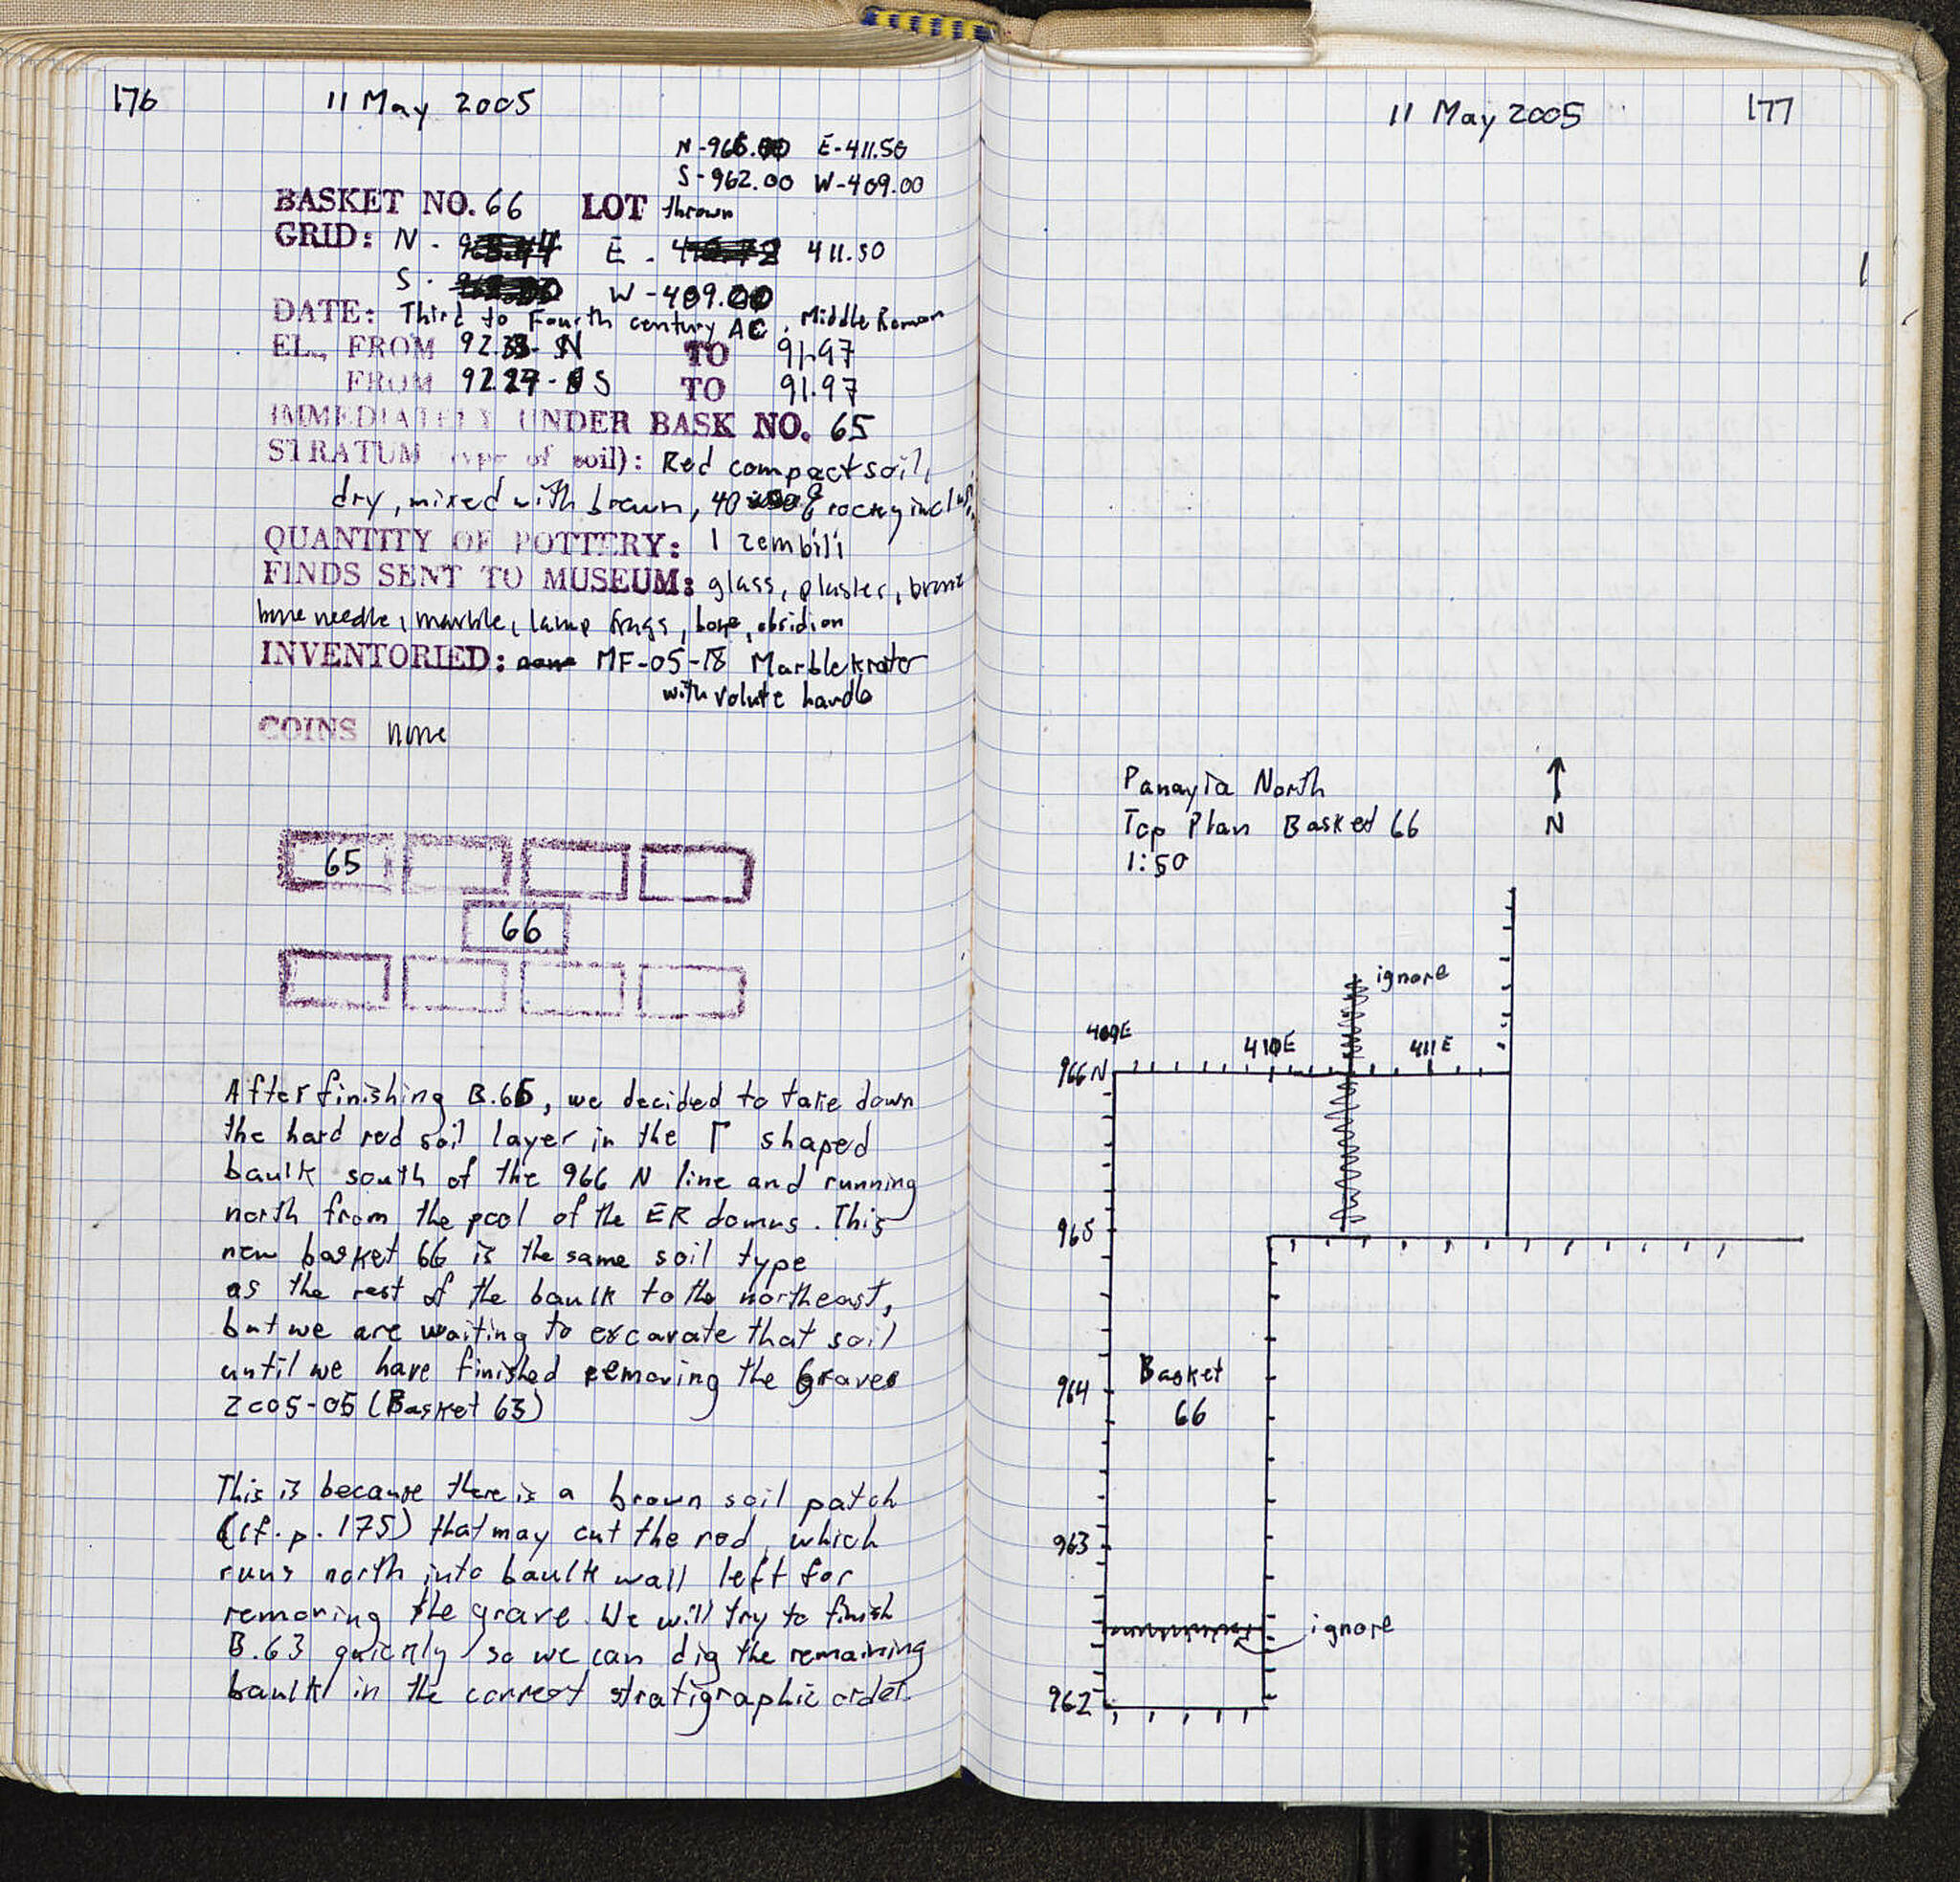 176 11 May 2005
N-966.00 E-411.50
S-962.00 W-409.00
BASKET NO. 66 LOT thrown
GRID: N - E - 411.50
S - W - 409.00
DATE: Third to Fourth century AC, Middle Roman
EL., FROM 92.33 - N TO 91.97
FROM 92.27 - S TO 91.97
IMMEDIATELY UNDER BASK NO. 65
STRATUM (type of soil): Red compact soil,
dry, mixed with brown, 40 % rocky inclus.
QUANTITY OF POTTERY: 1 zembili
FINDS SENT TO MUSEUM: glass, plaster, bronze
bone needle, marble, lamp frags, bone, obsidian
INVENTORIED: none MF-05-18 Marble krater
with volute handle
COINS none
65
66
After finishing B.65, we decided to take down
the hard red soil layer in the Γ shaped
baulk south of the 966 N line and running
north from the pool of the ER domus. This
new basket 66 is the same soil type
as the rest of the baulk to the northeast,
but we are waiting to excavate that soil
until we have finished removing the Graves
2005-05 (Basket 63)
This is because there is a brown soil patch
(cf. p. 175) that may cut the red, which
runs north into baulk wall left for
removing the grave. We will try to finish
B.63 quickly so we can dig the remaining
baulk in the correct stratigraphic order.
11 May 2005 177
Panayia North
Top Plan Basked 66
1:50
N
ignore
409E 410E 411E
966 N
965
964
Basket
66
963
ignore
962